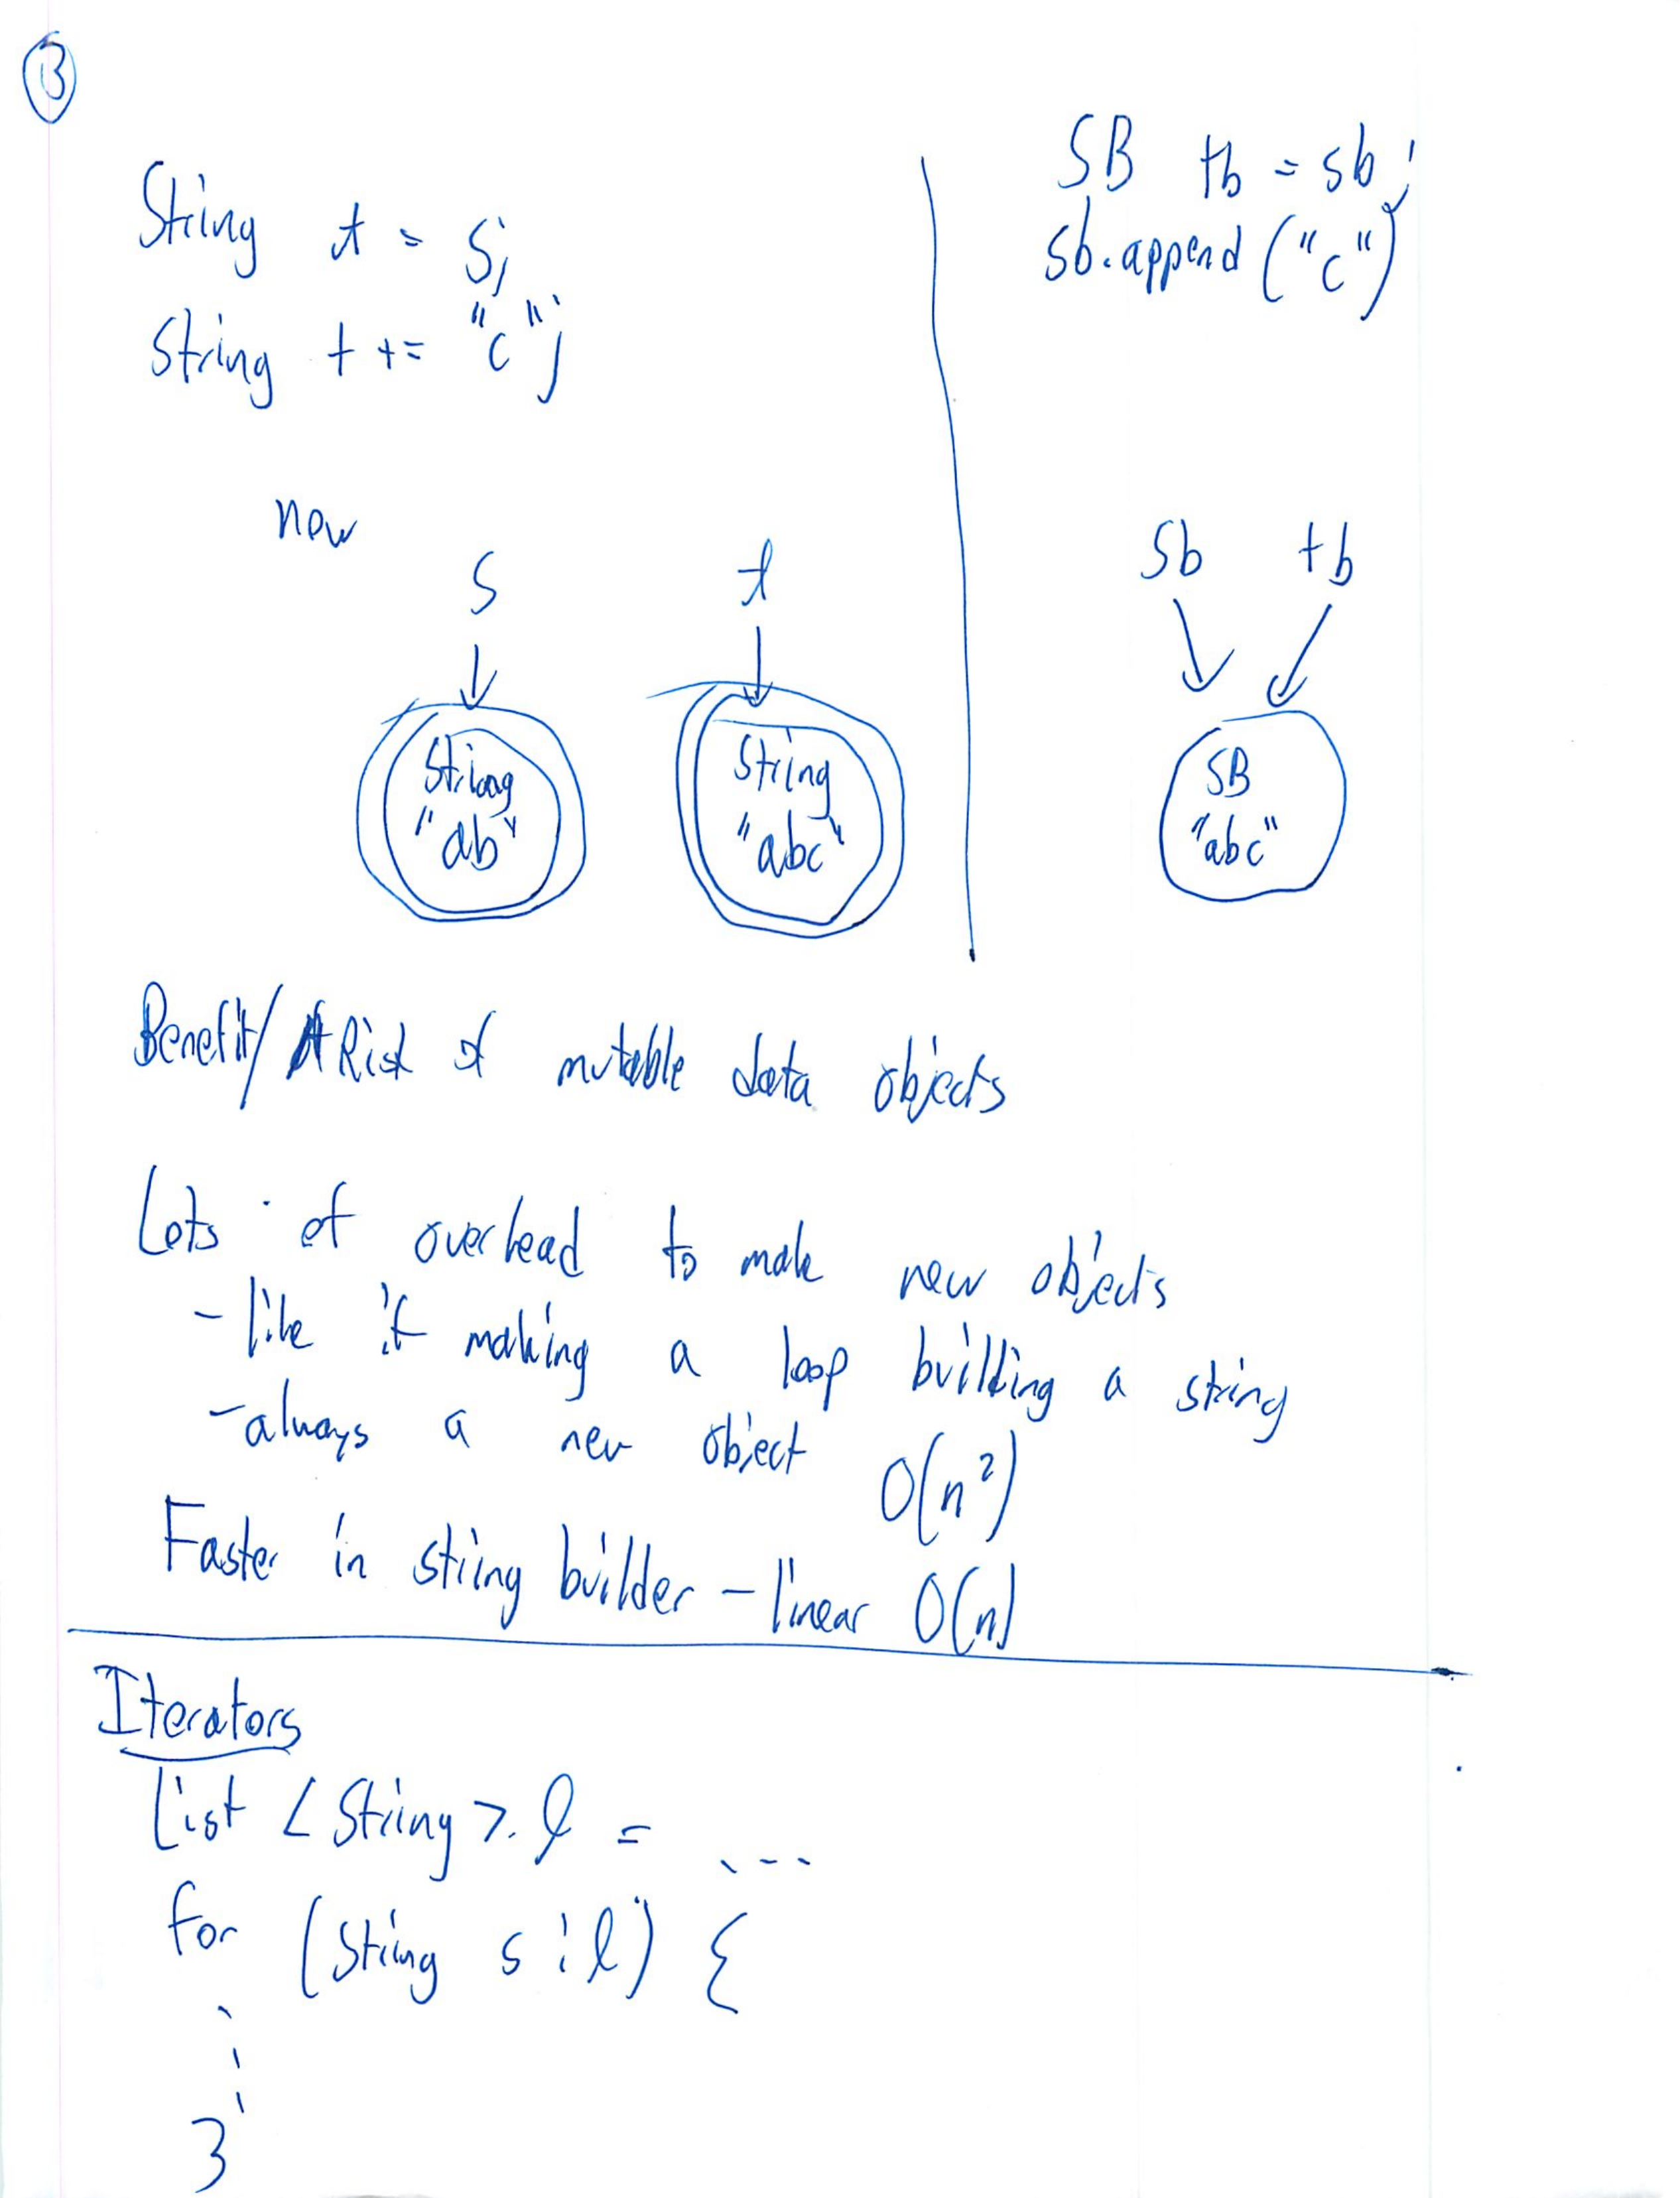 3
String t = s;
String t += "c";
SB tb = sb;
sb.append("c")
now
s t
String
"ab"
String
"abc"
sb tb
SB
"abc"
Benefit/Risk of mutable data objects
Lots of overhead to make new objects
- like if making a loop building a string
- always a new object O(n²)
Faster in string builder - linear O(n)
Iterators
List <String> l = ...
for (String s : l) {
}